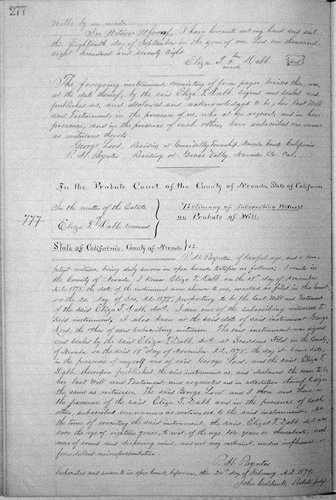 277
Walls by me made.
In Witness Whereof, I have hereunto set my hand and seal
this eighteenth day of September in the year of our Lord one thousand
eight hundred and seventy eight
Eliza T. Rabb
The foregoing instrument, consisting of four pages besides this, was,
at the date thereof, by the said Eliza T. Rabb signed and sealed and
published as, and declared and acknowledged to be, her last Will
and Testament, in the presence of us, who at her request, and in her
presence, and in the presence of each other, have subscribed our names
as witnesses thereto
George Lord, Residing at Township, Nevada County, California
P. H. Paynter Residing at Grass Valley Nevada Co. Cal.
In the Probate Court of the County of Nevada, State of California
In the matter of the Estate
of
Eliza T. Rabb deceased
Testimony of Subscribing Witness
on Probate of Will.
777
State of California, County of Nevada ss.
P. H. Paynter of lawful age, and a com-
petent witness, being duly sworn in open Court, testifies as follows: I reside in
the County of Nevada, I knew Eliza T. Rabb on the
A.D. 1878, the date of the instrument now shown to me, marked as filed in this Court
on the day of A.D. 1878, purporting to be the last Will and Testament
of the said Eliza T. Rabb, dec'd. I am one of the subscribing witnesses to
said instrument, I also knew at the said date of said instrument George
Lord, the other of said subscribing witnesses. The said instrument was signed
and sealed by the said Eliza T. Rabb dec'd at in the County
of Nevada on the said 18th day of A.D. 1878, the day it bears date
in the presence of myself and of said George Lord, and the said Eliza T.
Rabb, thereupon published the said instrument as, and declared the same to be
her last Will and Testament, and requested us in attestation thereof to sign
the same as witnesses. The said George Lord and I then and there in
the presence of the said Eliza T. Rabb and in the presence of each
other, subscribed our names as witnesses to the said instrument. At
the time of executing the said instrument, the said Eliza T. Rabb dec'd was
over the age of eighteen years, to wit of the age of years or thereabouts, and
was of sound and disposing mind, and not any restraint, undue influence, or
fraudulent misrepresentation.
P. H. Paynter
Subscribed and sworn to in open Court, before me, this 20th day of February A.D. 1879.
John Caldwell, Probate Judge